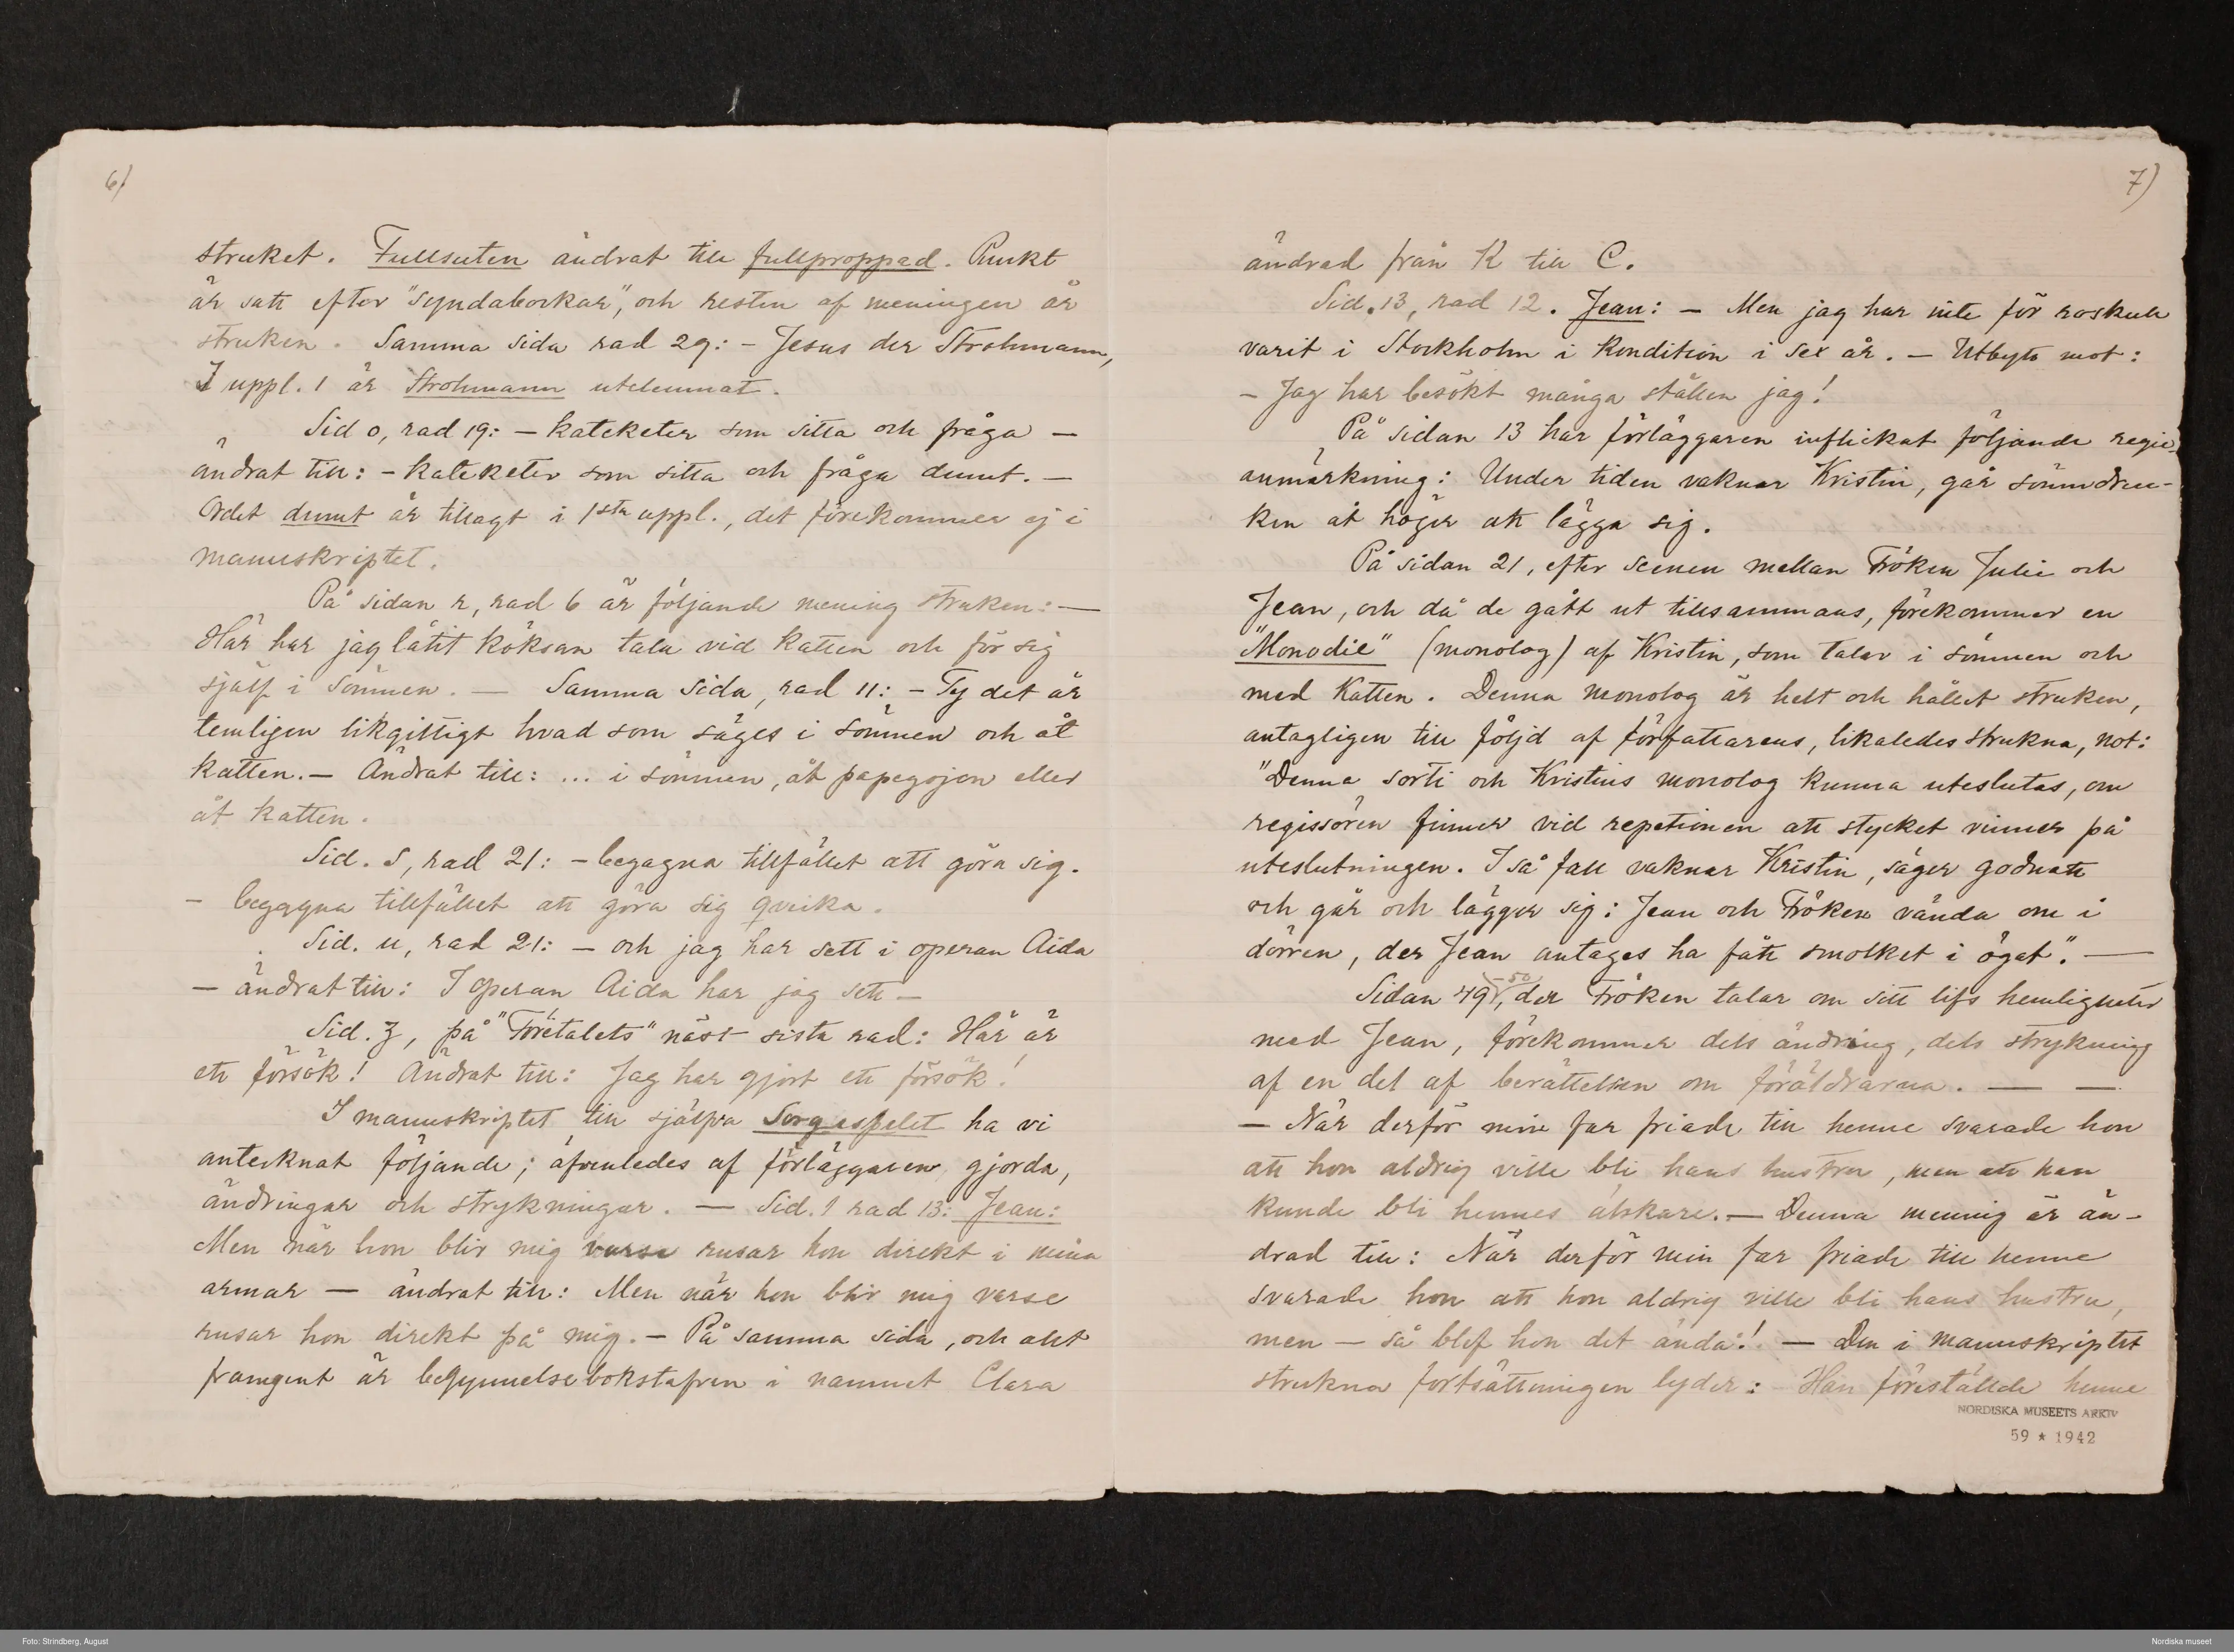 6)
struket. Fullsuten ändrat till fullproppad. Punkt
är satt efter "syndabockar", och resten af meningen är
struken. Samma sida rad 29: – Jesus der Strohmann,
I uppl. 1 är Strohmann utelemnat.
Sid o, rad 19: – kateketer som sitta och fråga –
ändrat till: – kateketer som sitta och fråga dumt. –
Ordet dumt är tillagt i 1sta uppl., det förekommer ej i
manuskriptet.
På sidan r, rad 6 är följande mening struken: –
Här har jag låtit köksan tala vid katten och för sig
sjelf i sömnen. – Samma sida, rad 11: – Ty det är
temligen likgiltigt hvad som säges i sömnen och åt
katten. – Ändrat till: ... i sömnen, åt papegojan eller
åt katten.
Sid. s, rad 21: – begagna tillfället att göra sig.
– begagna tillfället att göra sig qvicka.
Sid. u, rad 21: – och jag har sett i operan Aida
– ändrat till: I operan Aida har jag sett –
Sid. z, på "Företalets" näst sista rad: Här är
ett försök! Ändrat till: Jag har gjort ett försök!
I manuskriptet till sjelfva Sorgespelet ha vi
antecknat följande; äfvenledes af förläggaren, gjorda,
ändringar och strykningar. – Sid. 1 rad 13: Jean:
Men när hon blir mig varse rusar hon direkt i mina
armar – ändrat till: Men när hon blir mig varse
rusar hon direkt på mig. – På samma sida, och allt
framgent är begynnelsebokstafven i namnet Clara
7)
ändrad från K till C.
Sid. 13, rad 12. Jean: – Men jag har inte för roskull
varit i Stockholm i kondition i sex år. – Utbytt mot:
– Jag har besökt många ställen jag!
På sidan 13 har förläggaren inflickat följande regie-
anmärkning: Under tiden vaknar Kristin, går sömndruc-
ken åt höger att lägga sig.
På sidan 21, efter scenen mellan Fröken Julie och
Jean, och då de gått ut tillsammans, förekommer en
"Monodie" (monolog) af Kristin, som talar i sömnen och
med Katten. Denna monolog är helt och hållet struken,
antagligen till följd af författarens, likaledes strukna, not:
"Denna sorti och Kristins monolog kunna uteslutas, om
regissören finner vid repetionen att stycket vinner på
uteslutningen. I så fall vaknar Kristin, säger godnatt
och går och lägger sig: Jean och Fröken vända om i
dörren, der Jean antages ha fått smolket i ögat". –
Sidan 49–50, der Fröken talar om sitt lifs hemligheter
med Jean, förekommer dels ändring, dels strykning
af en del af berättelsen om föräldrarna. – –
– När derför min far friade till henne svarade hon
att hon aldrig ville bli hans hustru, men att han
kunde bli hennes älskare. – Denna mening är än-
drad till: När derför min far friade till henne
svarade hon att hon aldrig ville bli hans hustru,
men – så blef hon det ändå! – Den i manuskriptet
strukna fortsättningen lyder: – Han förestälde henne
NORDISKA MUSEETS ARKIV
59 ★ 1942
Foto: Strindberg, August
Nordiska museet